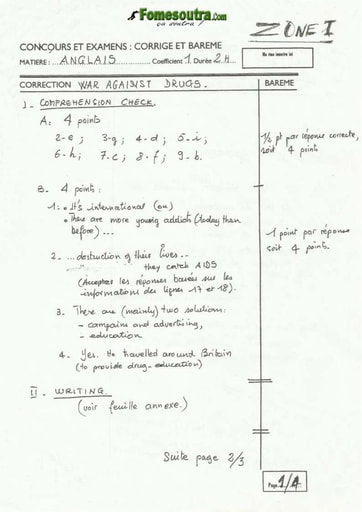 Fomesoutra.com
ça soutra !
ZONE I
CONCOURS ET EXAMENS : CORRIGE ET BAREME
MATIERE : ANGLAIS Coefficient 1. Durée 2.H
Ne rien inscrire ici
CORRECTION WAR AGAINST DRUGS.
BAREME
I - COMPREHENSION CHECK.
A. 4 points
2-e ; 3-g ; 4-d ; 5-i ;
6-h ; 7-c ; 8-f ; 9-b.
1/2 pt par réponse correcte,
soit 4 points
B. 4 points :
1. • It's international (ou)
• There are more young addicts (today than
before) ...
1 point par réponse
soit 4 points.
2. ... destruction of their lives...
they catch AIDS
(Accepter les réponses basées sur les
informations des lignes 17 et 18).
3. There are (mainly) two solutions:
- campains and advertising,
- education
4. Yes. He travelled around Britain
(to provide drug-education)
II - WRITING.
(voir feuille annexe.)
Suite page 2/3
Page 1/4